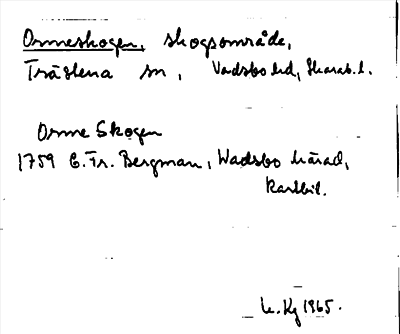 Ormeskogen, skogsområde,
Trästena sn, Vadsbo hd, Skarab. l.
Orme Skogen
1759 E. Fr. Bergman, Wadsbo härad,
Kartbil.
1965.